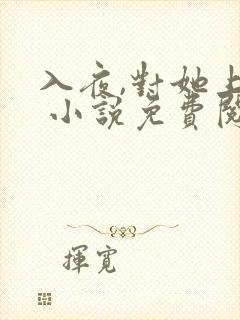 入夜,對她上
小說免費閱
揮寬